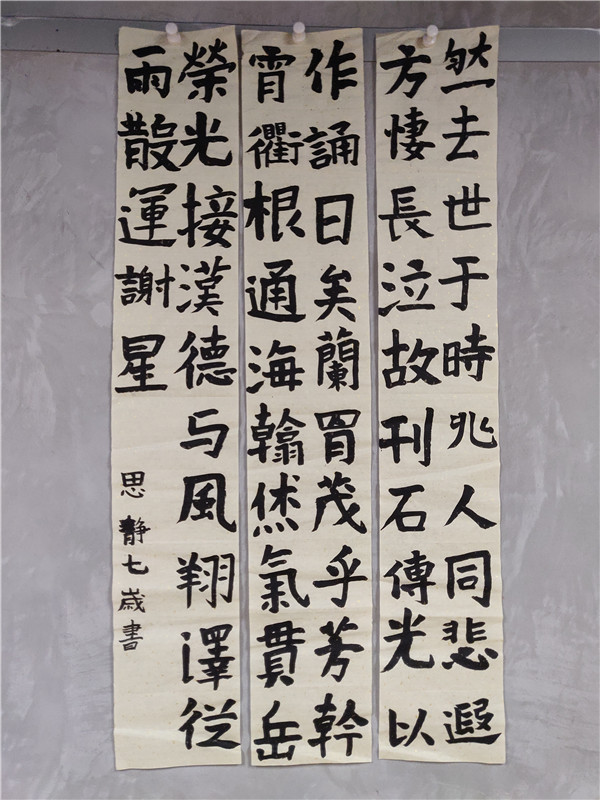 然去世于時兆人同悲遐
方悽長泣故刊石傳光以
作誦曰矣蘭胄茂乎芳幹
霄衢根通海翰烋氣貫岳
榮光接漢德与風翔澤従
雨散運謝星
思靜七歲書